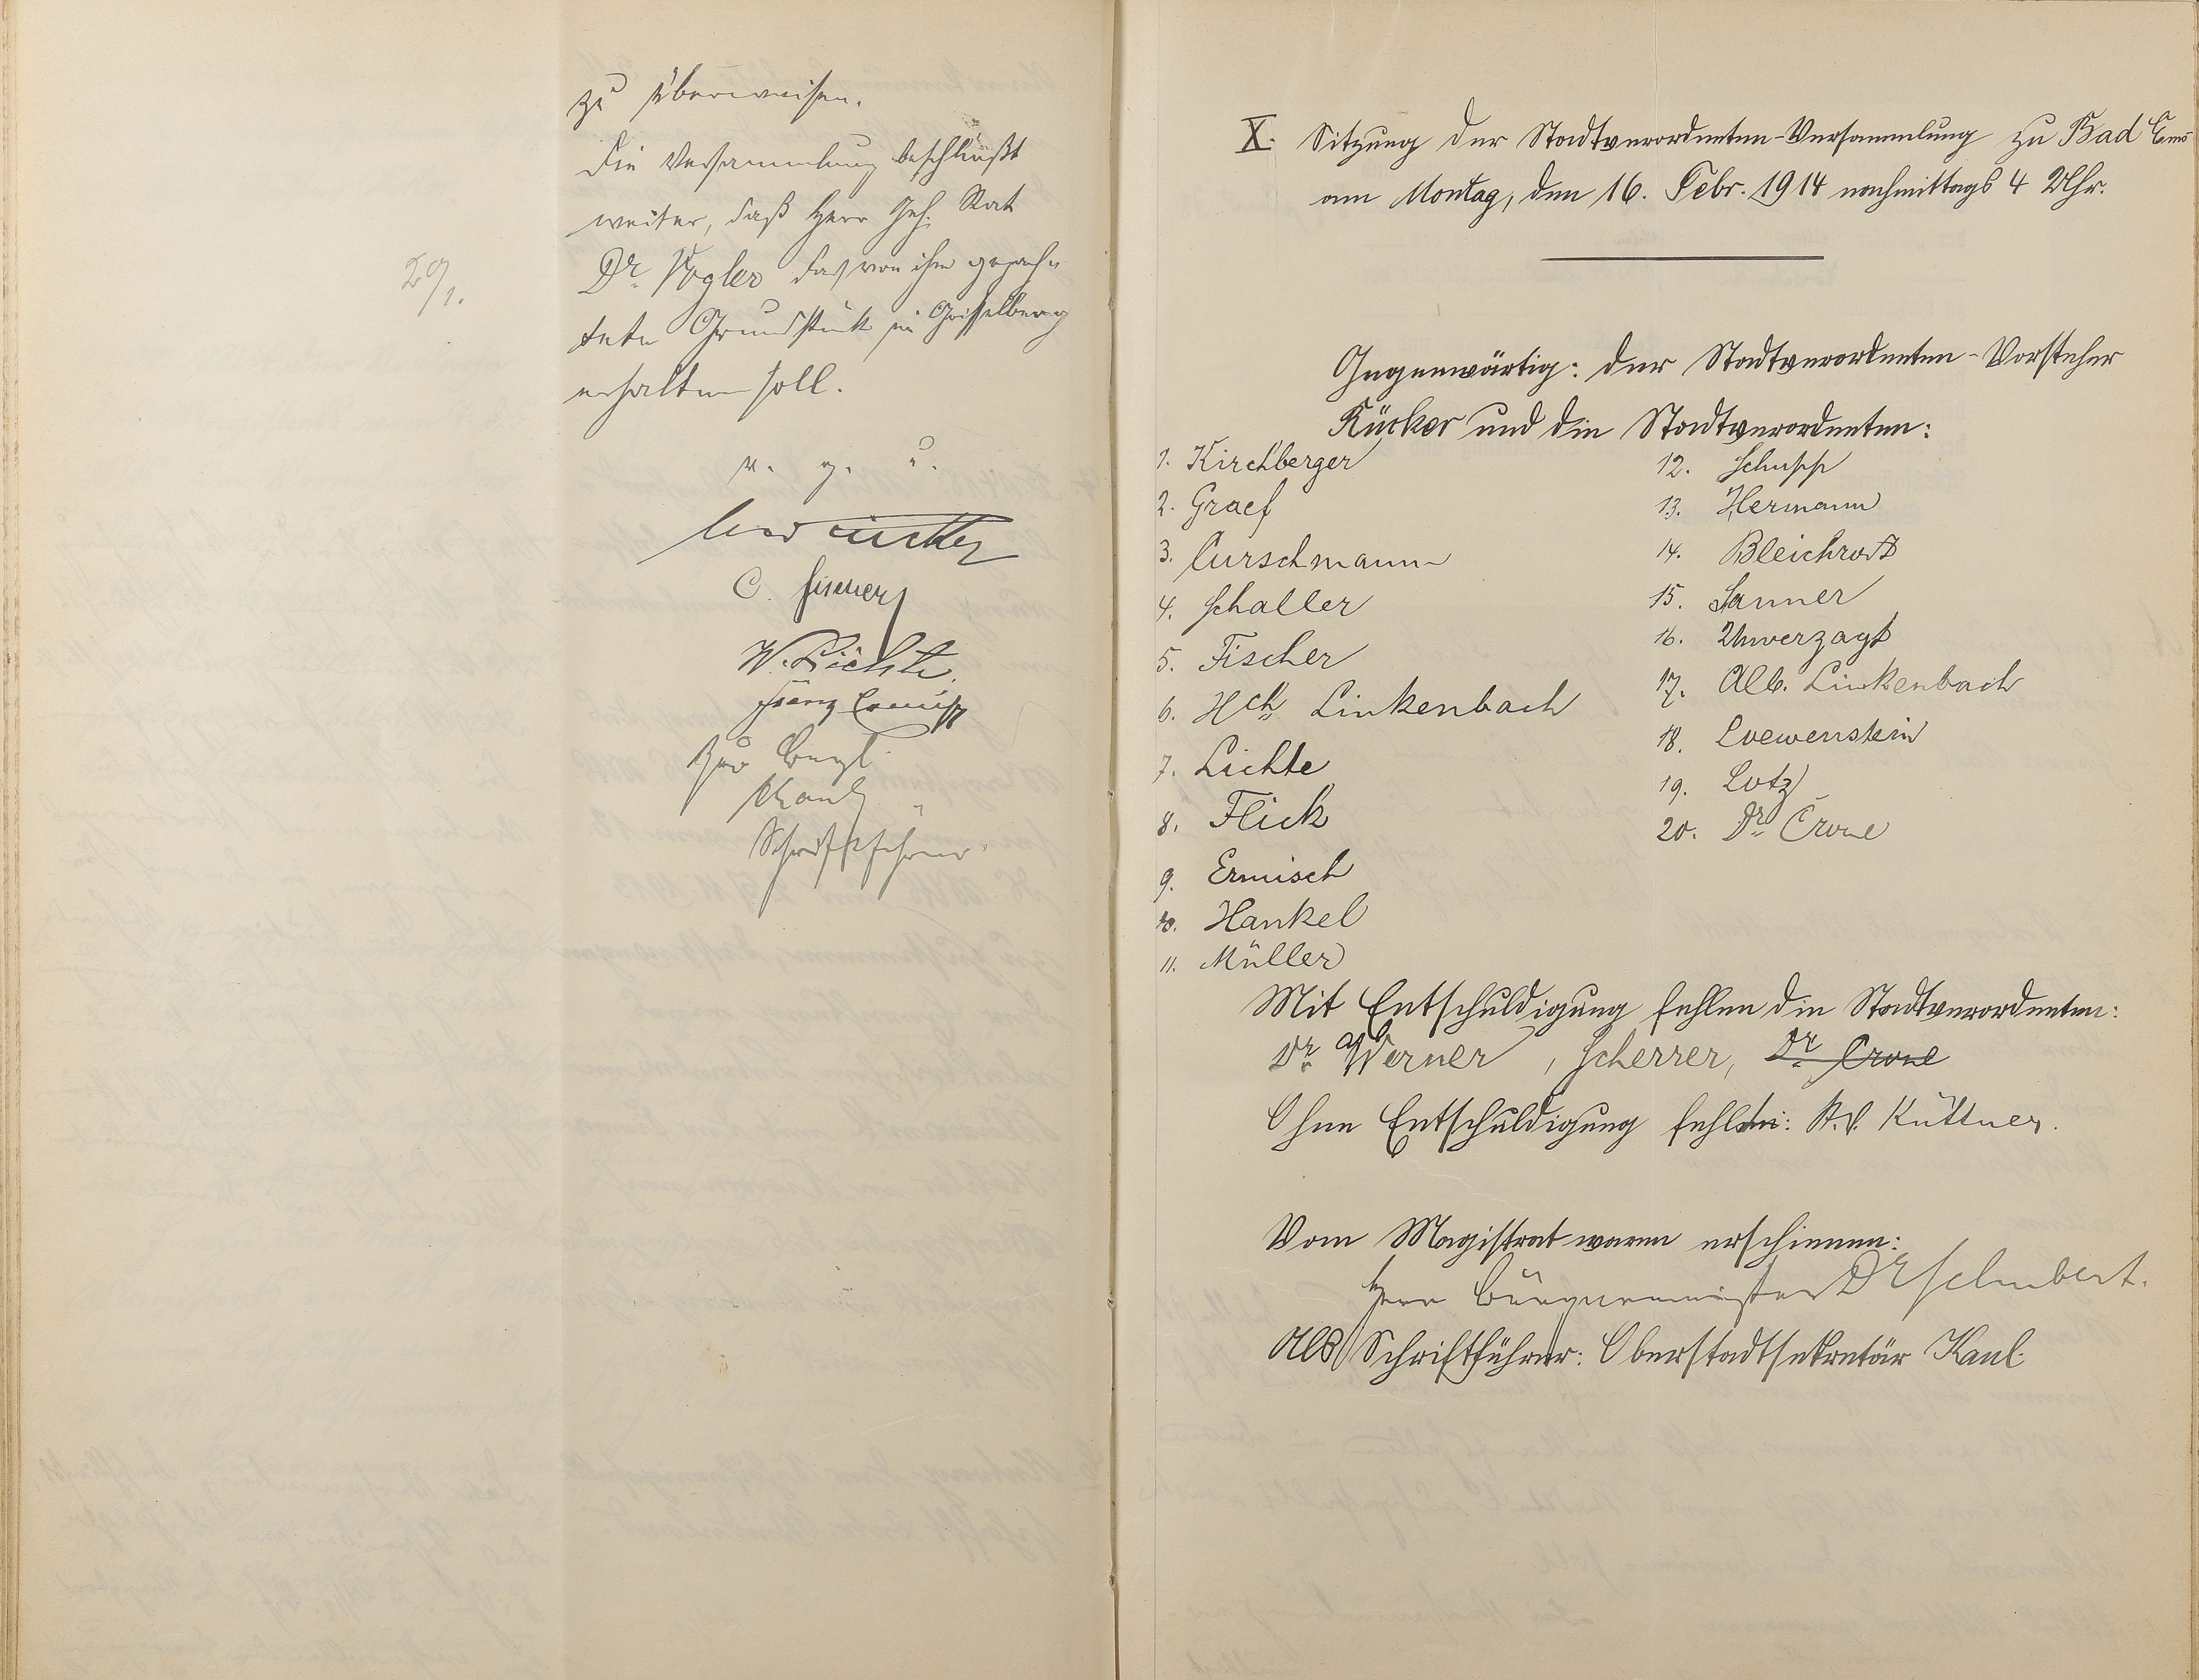 zu überweisen.
Die Versammlung beschließt
weiter, daß Herr Geh. Rat
Dr. Vogler das von ihm gepach-
tete Grundstück in Grisselberg
erhalten soll.
29/1.
v. g. u.
C. Fischer
W. Lichte.
Franz Ermisch
Zur Begl.
Kaul
Schriftführer.
X. Sitzung der Stadtverordneten-Versammlung zu Bad Ems
am Montag, den 16. Febr. 1914 nachmittags 4 Uhr.
Gegenwärtig: der Stadtverordneten-Vorsteher
Rücker und die Stadtverordneten:
1. Kirchberger
2. Graef
3. Curschmann
4. Schaller
5. Fischer
6. Hch. Linkenbach
7. Lichte
8. Flick
9. Ermisch
10. Hankel
11. Müller
12. Schupp
13. Hermann
14. Bleichrodt
15. Sanner
16. Unverzagt
17. Alb. Linkenbach
18. Loewenstein
19. Lotz
20. Dr. Crone
Mit Entschuldigung fehlen die Stadtverordneten:
Dr. Werner, Scherrer, Dr. Crone
Ohne Entschuldigung fehlte: St.V. Küttner.
Vom Magistrat waren erschienen:
Herr Bürgermeister Dr Schubert.
Als Schriftführer: Oberstadtsekretär Kaul.